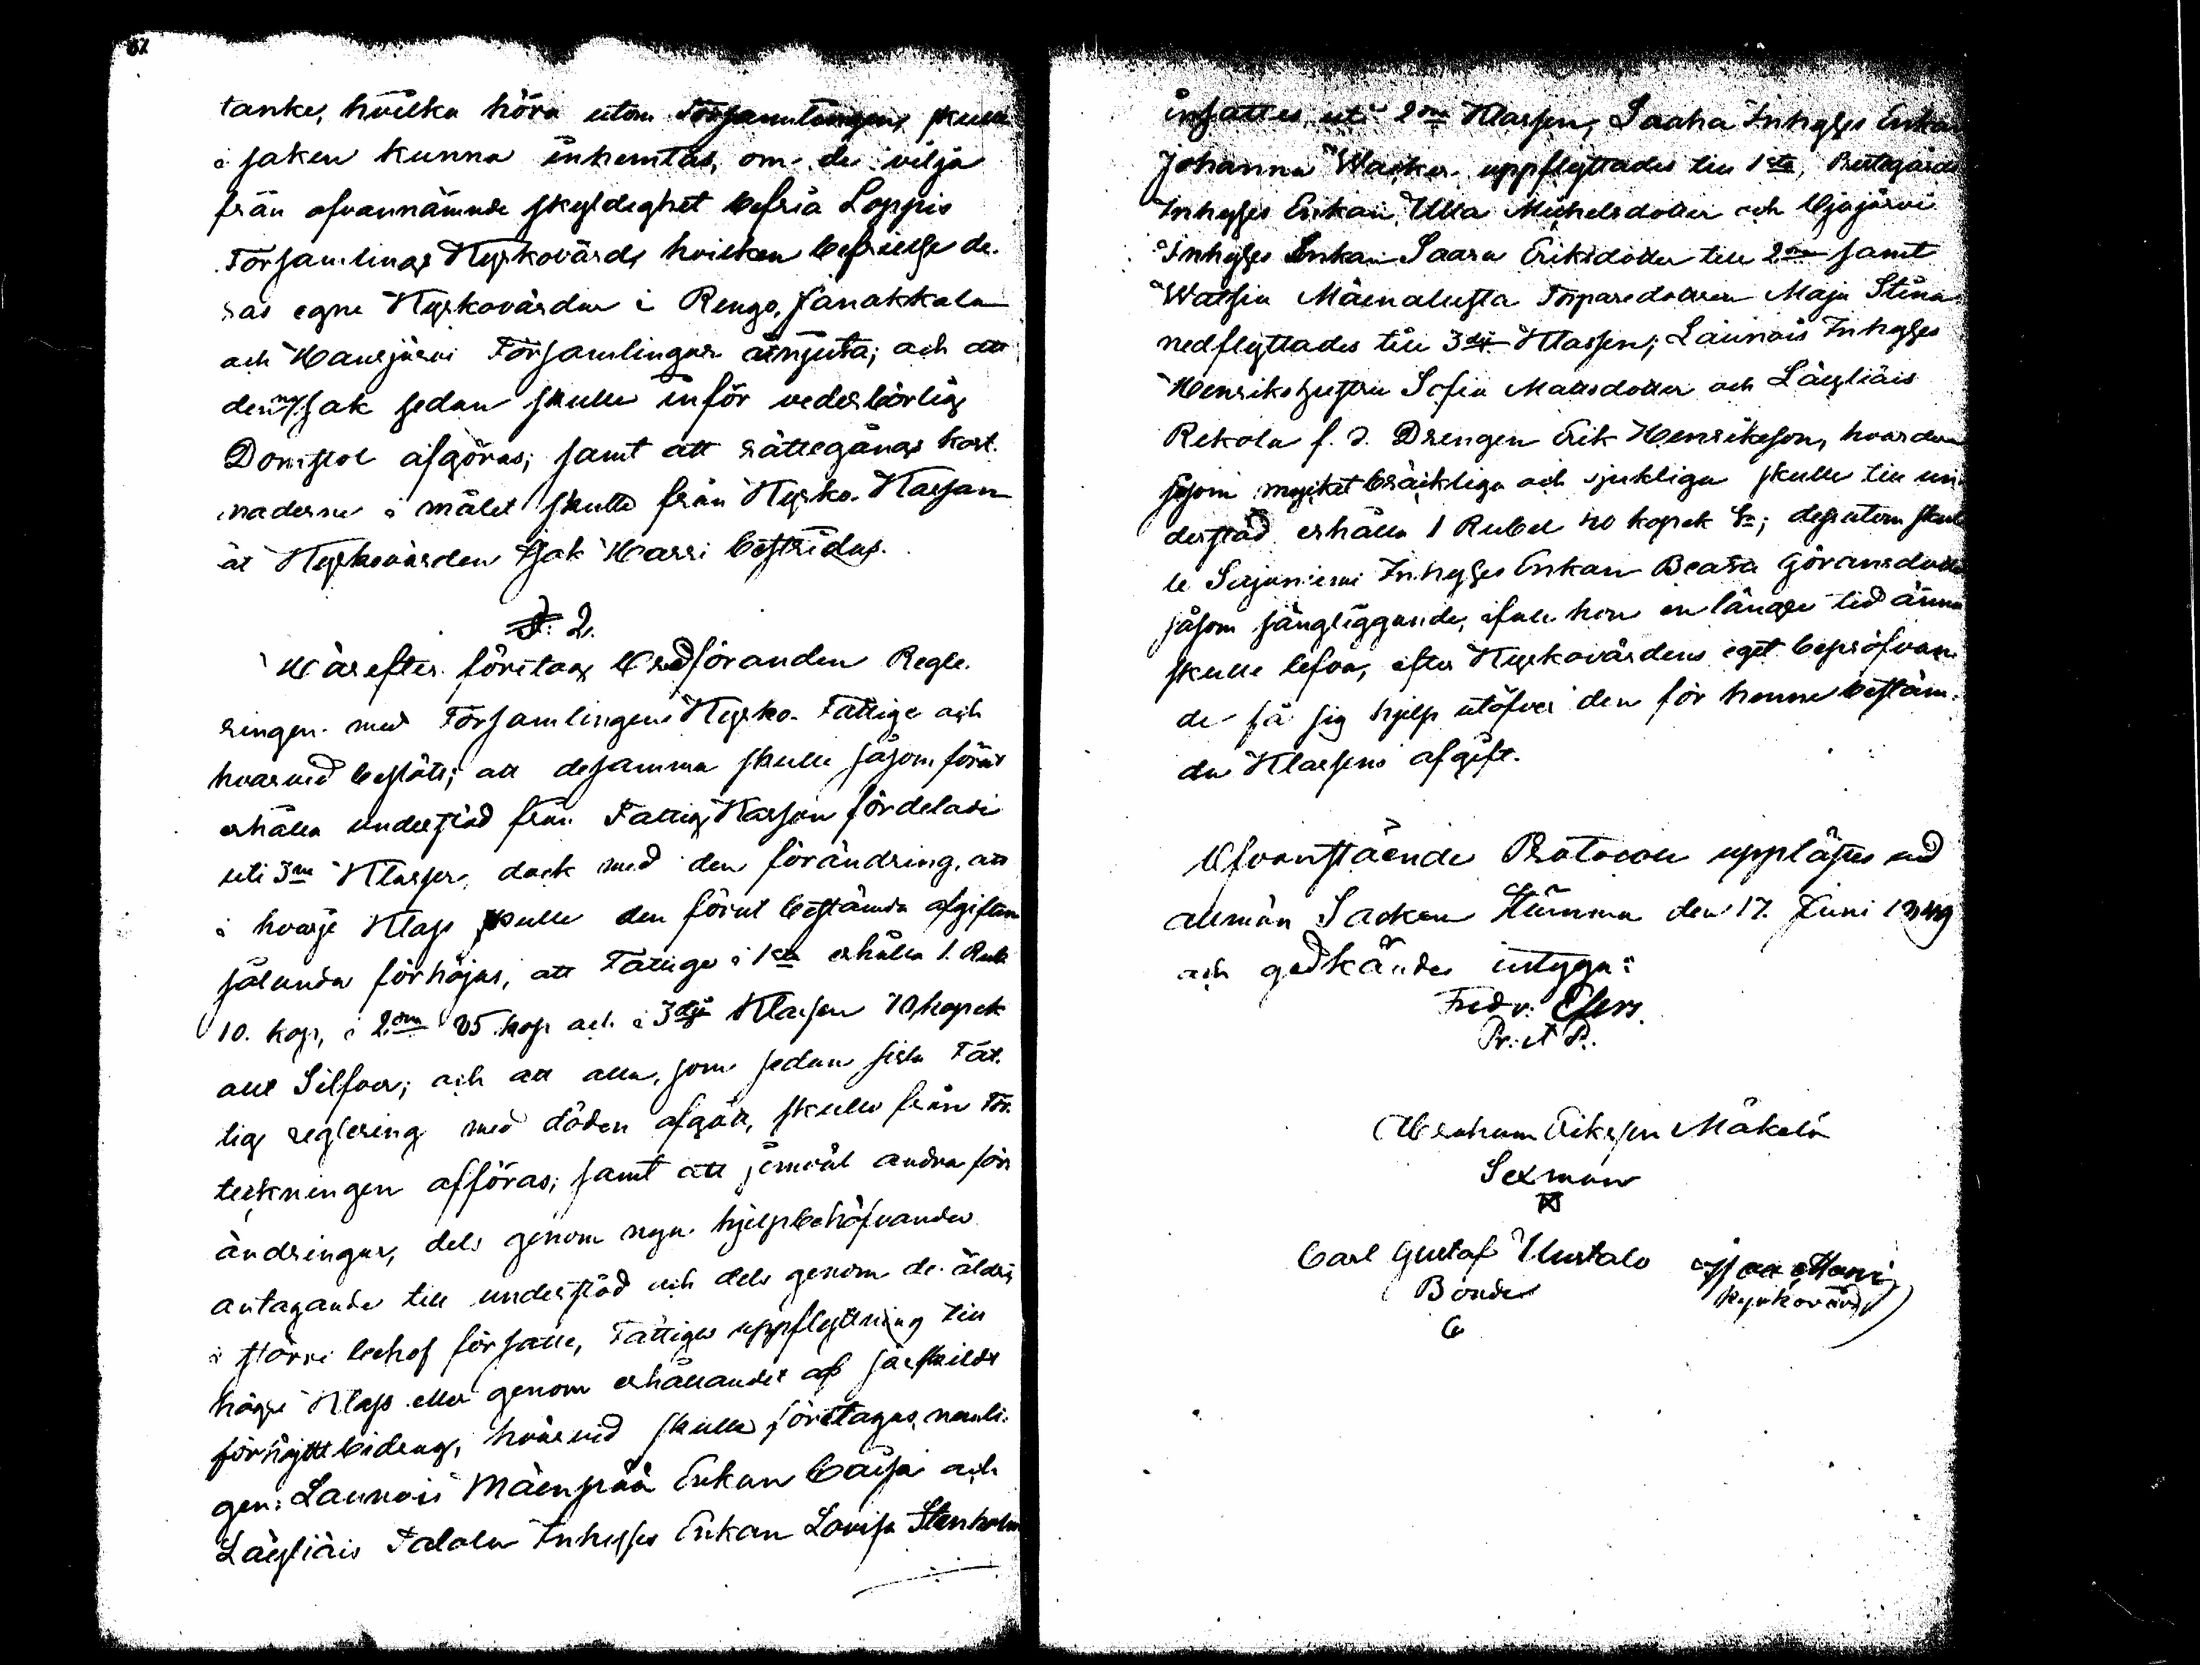 tanke, hvilka höra utom Församlingen, skulle
i saken kunna inhemtas, om de vilja
från ofvannämnde skyldighet befria Loppis
Församlings Kyrkovärd, hvilken befrielse de-
ras egne Kyrkovärdar i Rengo, Janakkala
och Hausjärvi Församlingar åtnjuta; och att
denna sak sedan skulle inför vederbörlig
Domstol afgöras; samt att rättegångs kost-
naderne i målet skulle från Kyrko-Kassan
åt Kyrkovärden Isak Harri bestridas.
§. 2.
Härefter företog Ordföranden Regle-
ringen med Församlingens Kyrko-Fattige och
hvarvid beslöts; att desamma skulle såsom förut
erhålla understöd från Fattig Kassan fördelade
uti 3ne Klasser, dock med den förändring, att
i hvarje Klass skulle den förut bestämda afgiften
sålunda förhöjas, att Fattige i 1sta erhålla 1. Rub
10. kop, i 2dra 85 kop och i 3dje Klassen 70 kopek
allt Silfver; och att alla, som sedan sista Fat-
tig reglering med döden afgått, skulle från För-
teckningen afföras; samt att jemväl andra för-
ändringar, dels genom nya hjelpbehöfvandes
antagande till understöd och dels genom de äldre,
i större behof försatte, Fattiges uppflyttning till
högre Klass eller genom erhållandet af särskildt
förhöjdt bidrag, hvarvid skulle företagas, nemli-
gen: Launois Mäenpää Enkan Caisa och
Läyliäis Talola Inhyses Enkan Lovisa Stenholm
insattes uti 2dra Klassen, Saaha Inhyses Enkan
Johanna Wacker uppflyttades till 1sta, Prestgårds
Inhyses Enkan Ulla Michelsdotter och Ojajärvi
Inhyses Enkan Saara Eriksdotter till 2dra samt
Watsia Mäenalusta Torparedottren Maja Stina
nedflyttades till 3dje Klassen; Launois Inhyses
Henriks hustru Sofia Mattsdotter och Läyliäis
Rekola f. d. Drengen Erik Henriksson, hvardera
såsom mycket bräckliga och sjukliga skulle till un-
derstöd erhålla 1 Rubel 40 kopek Sr; dessutom skul-
le Sajaniemi Inhyses Enkan Beata Göransdotter
såsom sängliggande, ifall hon en längre tid ännu
skulle lefva, efter Kyrkovärdens eget bepröfvan-
de få sig hjelp utöfver den för henne bestäm-
da Klassens afgift.
Ofvanstående Protocoll upplästes vid
allmän Sockne Stämma den 17. Juni 1849
och godkändes intyga:
Fredr: Elers.
Pr. et P.
Abraham Eriksson Mäkelä
Sexman
Carl Gustaf Uustalo Isac Harri
Bonde Kyrkovärd